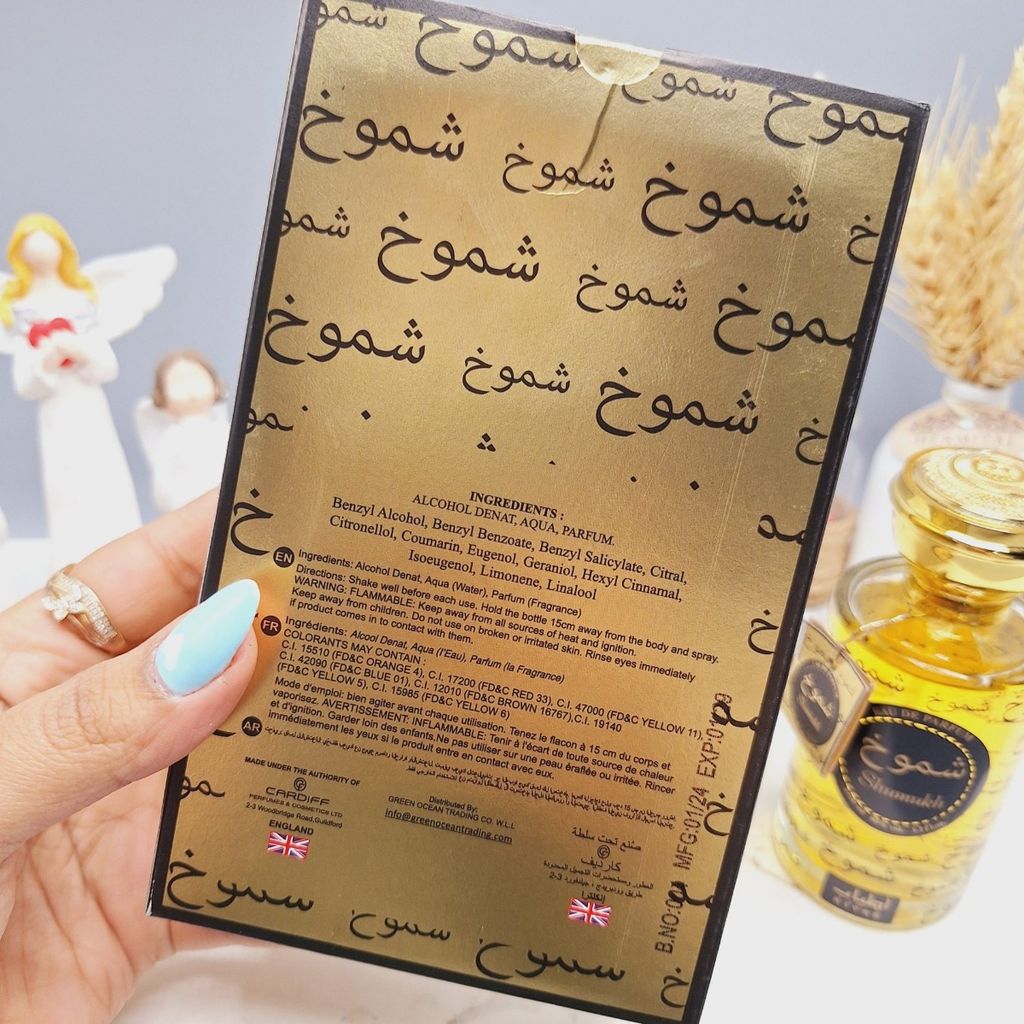 شموخ شموخ شموخ شموخ
شموخ شموخ شموخ
شموخ شموخ شموخ
شموخ شموخ شموخ
INGREDIENTS :
ALCOHOL DENAT, AQUA, PARFUM.
Benzyl Alcohol, Benzyl Benzoate, Benzyl Salicylate, Citral,
Citronellol, Coumarin, Eugenol, Geraniol, Hexyl Cinnamal,
Isoeugenol, Limonene, Linalool
EN Ingredients: Alcohol Denat, Aqua (Water), Parfum (Fragrance)
Directions: Shake well before each use. Hold the bottle 15cm away from the body and spray.
WARNING: FLAMMABLE: Keep away from all sources of heat and ignition.
Keep away from children. Do not use on broken or irritated skin. Rinse eyes immediately
if product comes in to contact with them.
FR Ingrédients: Alcool Denat, Aqua (l'Eau), Parfum (la Fragrance)
COLORANTS MAY CONTAIN :
C.I. 15510 (FD&C ORANGE 4), C.I. 17200 (FD&C RED 33), C.I. 47000 (FD&C YELLOW 11),
C.I. 42090 (FD&C BLUE 01), C.I. 12010 (FD&C BROWN 16767),C.I. 19140
(FD&C YELLOW 5), C.I. 15985 (FD&C YELLOW 6)
Mode d'emploi: bien agiter avant chaque utilisation. Tenez le flacon à 15 cm du corps et
vaporisez. AVERTISSEMENT: INFLAMMABLE: Tenir à l'écart de toute source de chaleur
et d'ignition. Garder loin des enfants.Ne pas utiliser sur une peau éraflée ou irritée. Rincer
immédiatement les yeux si le produit entre en contact avec eux.
AR
MADE UNDER THE AUTHORITY OF
CARDIFF
PERFUMES & COSMETICS LTD
2-3 Woodbridge Road,Guildford
ENGLAND
Distributed By:
GREEN OCEAN TRADING CO. W.L.L
info@greenoceantrading.com
صنع تحت سلطة
كارديف
إنكلترا
MFG:01/24
شموخ
EAU DE PARFUM
شموخ
Shumukh